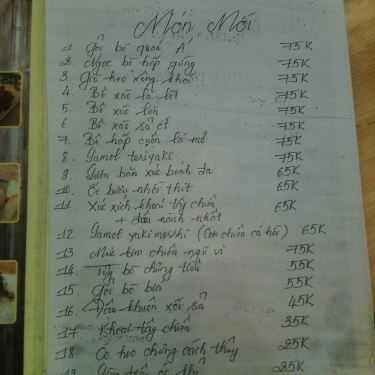 Món Mới
1 Gỏi bò quơn Á 75K
2 Ngọc bò hấp gừng 75K
3 Giò heo xông khói 75K
4. Bò xào lá lốt 75K
5. Bò xào 75K
6. Bò xào sả ớt 75K
7. Bò hấp cuốn lá mơ 75K
8. Samol teriyaki 75K
9. bón xúc bánh đa 65K
10. Ốc bươu nhồi thịt 65K
11. Xúc xích khoai tây chiên 65K
+ đậu nành nhật
12 Samol yakimeshi (Cơm chiên cá hồi) 65K
13 Mực tim chiên ngũ vị 75K
14 bò chưng tiêu 55K
15 Gỏi bò 55K
16 Đậu khuôn xốt sả 45K
17 Khoai tây chiên 35K
18 Óc heo chưng cách thủy 25K
19 25K